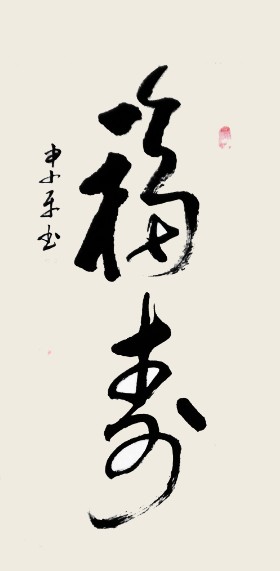 福寿
申小平书